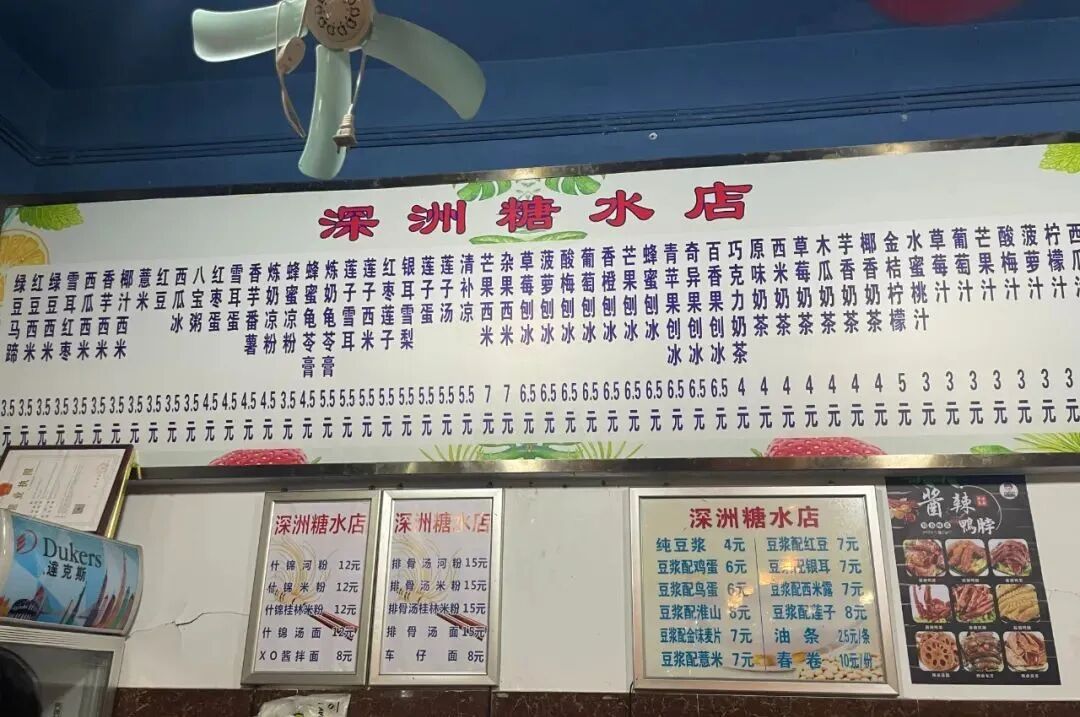 深洲糖水店
绿豆马蹄 3.5元
红豆西米 3.5元
绿豆西米 3.5元
雪耳红枣 3.5元
西瓜西米 3.5元
香芋西米 3.5元
椰汁西米 3.5元
薏米 3.5元
红豆 3.5元
西瓜冰 3.5元
八宝粥 3.5元
红枣蛋 4.5元
雪耳蛋 4.5元
香芋番薯 4.5元
炼奶凉粉 4.5元
蜂蜜凉粉 3.5元
蜂蜜龟苓膏 4.5元
炼奶龟苓膏 5.5元
莲子雪耳 5.5元
莲子西米 5.5元
红枣莲子 5.5元
银耳雪梨 5.5元
莲子蛋 5.5元
莲子汤 5.5元
清补凉 5.5元
芒果西米 7元
杂果西米 7元
草莓刨冰 6.5元
菠萝刨冰 6.5元
酸梅刨冰 6.5元
葡萄刨冰 6.5元
香橙刨冰 6.5元
芒果刨冰 6.5元
蜂蜜刨冰 6.5元
青苹果刨冰 6.5元
奇异果刨冰 6.5元
百香果刨冰 6.5元
巧克力奶茶 4元
原味奶茶 4元
西米奶茶 4元
草莓奶茶 4元
木瓜奶茶 4元
芋香奶茶 4元
椰香奶茶 4元
金桔柠檬 5元
水蜜桃汁 3元
草莓汁 3元
葡萄汁 3元
芒果汁 3元
酸梅汁 3元
菠萝汁 3元
柠檬汁 3元
西瓜
Dukers
達克斯
深洲糖水店
什锦河粉 12元
什锦米粉 12元
什锦桂林米粉 12元
什锦汤面 12元
XO酱拌面 8元
深洲糖水店
排骨汤河粉 15元
排骨汤米粉 15元
排骨汤桂林米粉 15元
排骨汤面 15元
车仔面 8元
深洲糖水店
纯豆浆 4元 豆浆配红豆 7元
豆浆配鸡蛋 6元 豆浆配银耳 7元
豆浆配鸟蛋 6元 豆浆配西米露 7元
豆浆配淮山 8元 豆浆配莲子 8元
豆浆配金味麦片 7元 油条 2.5元/条
豆浆配薏米 7元 春卷 10元/份
酱辣
鸭脖